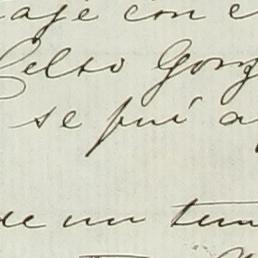 aje con e
Celso Gonz
se fui a
re un tem